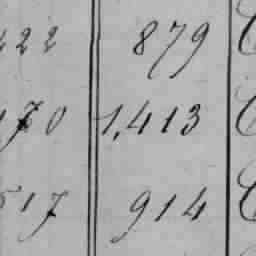 422 879 C
170 1,413 C
517 914 C